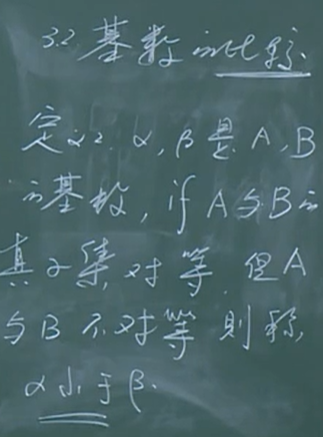 3.2 基数的比较
定义2. α,β是A,B
的基数, if A与B的
真子集对等.但A
与B不对等则称
α小于β.